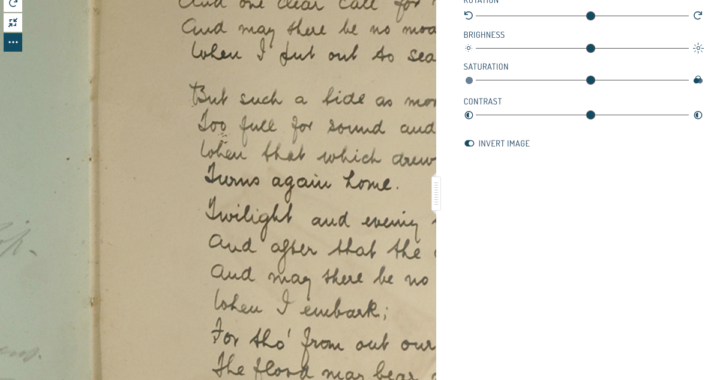 And one clear call for
And may there be no moa
When I put out to sea
But such a tide as mov
Too full for sound and
When that which drew
Turns again home.
Twilight and evening
And after that the
And may there be no
When I embark;
For tho' from out our
The flood may bear
ROTATION
BRIGHNESS
SATURATION
CONTRAST
INVERT IMAGE